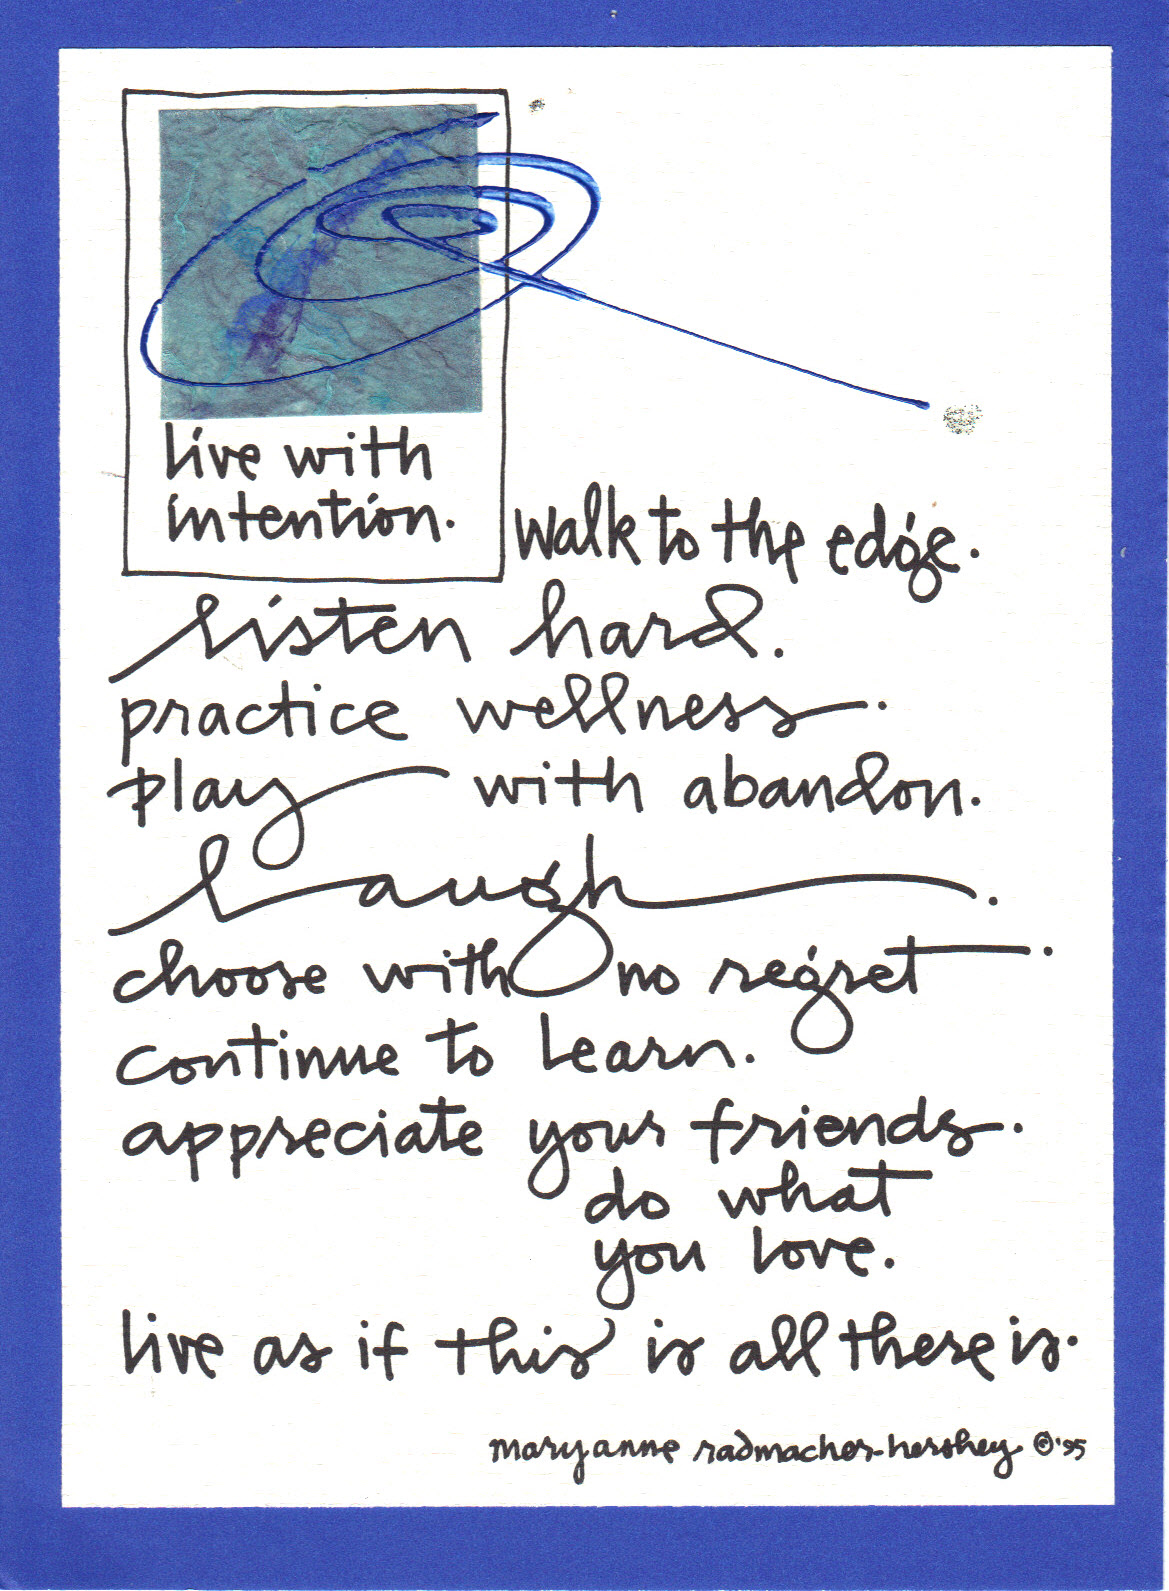 live with
intention.
walk to the edge.
listen hard.
practice wellness.
play with abandon.
laugh.
choose with no regret.
continue to learn.
appreciate your friends.
do what
you love.
live as if this is all there is.
maryanne radmacher-hershey © '95